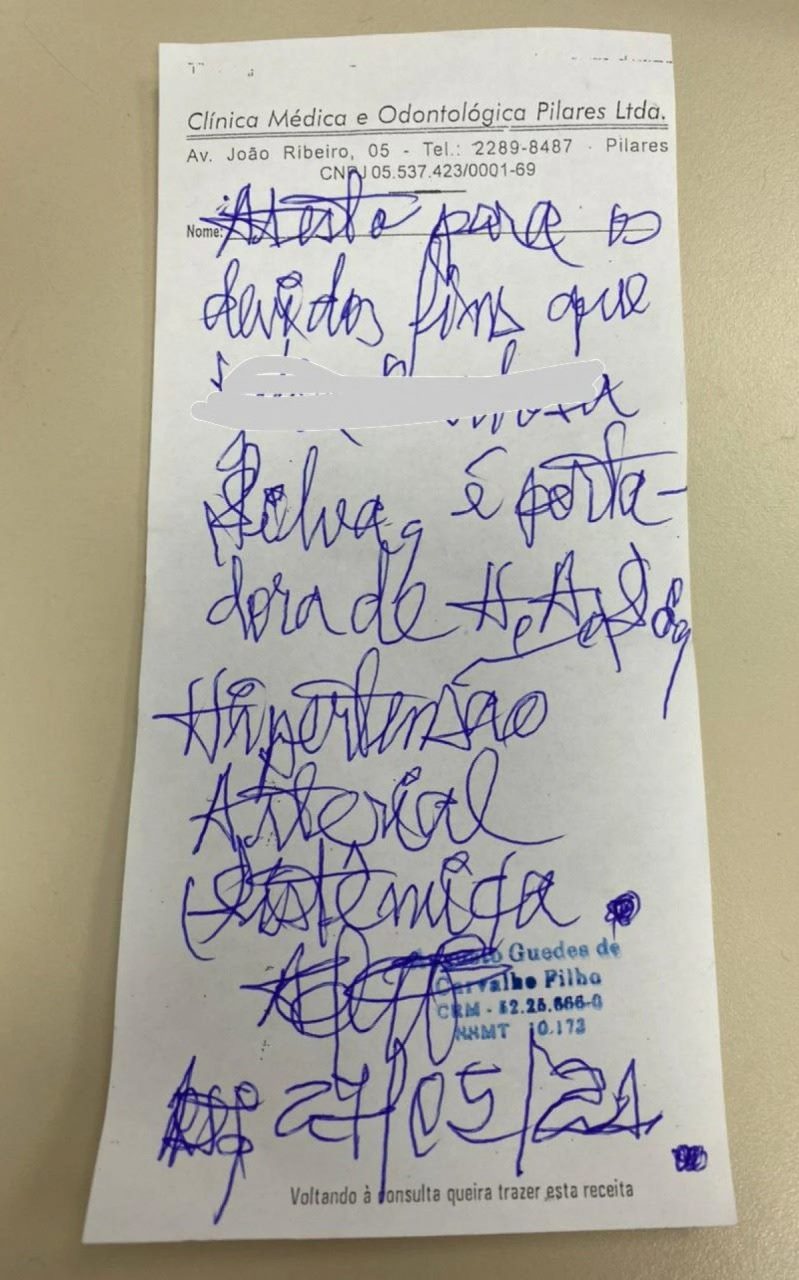 Clínica Médica e Odontológica Pilares Ltda.
Av. João Ribeiro, 05 - Tel.: 2289-8487 · Pilares
CNPJ 05.537.423/0001-69
Nome: Atesto para os
devidos fins que
Silva, é porta-
dora de H.A.S.,
Hipertensão
Arterial
Sistêmica.
Guedes de
Carvalho Filho
CRM - 52.25.666-0
27/05/21
Voltando à consulta queira trazer esta receita